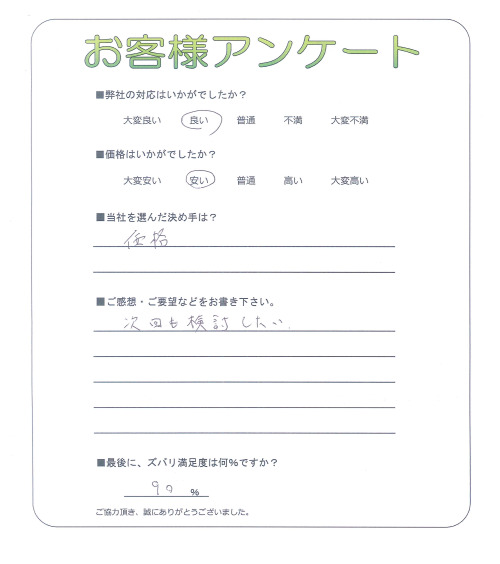 お客様アンケート
■弊社の対応はいかがでしたか？
大変良い 良い 普通 不満 大変不満
■価格はいかがでしたか？
大変安い 安い 普通 高い 大変高い
■当社を選んだ決め手は？
価格
■ご感想・ご要望などをお書き下さい。
次回も検討したい.
■最後に、ズバリ満足度は何%ですか？
90 %
ご協力頂き、誠にありがとうございました。